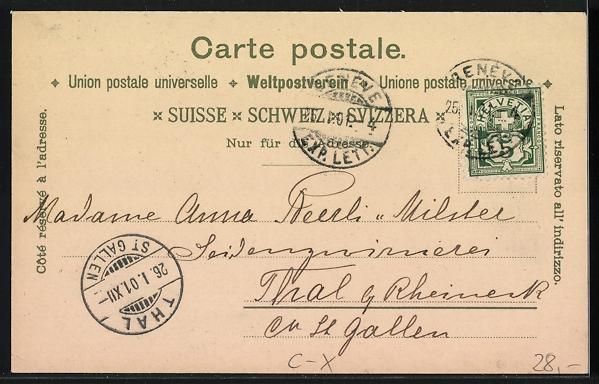 Carte postale.
Union postale universelle Weltpostverein Unione postale universale
SUISSE SCHWEIZ SVIZZERA
Nur für die Adresse.
Côté réservé à l'adresse.
Lato riservato all' indirizzo.
GENÈVE
EXP. LETT.
GENÈVE
25.
HELVETIA
5
Madame Anna Dierli-Milster
Seidenzwirnerei
Thal b/ Rheineck
Ctn St Gallen
THAL
26.I.01.XII
ST GALLEN
C-X
28,-